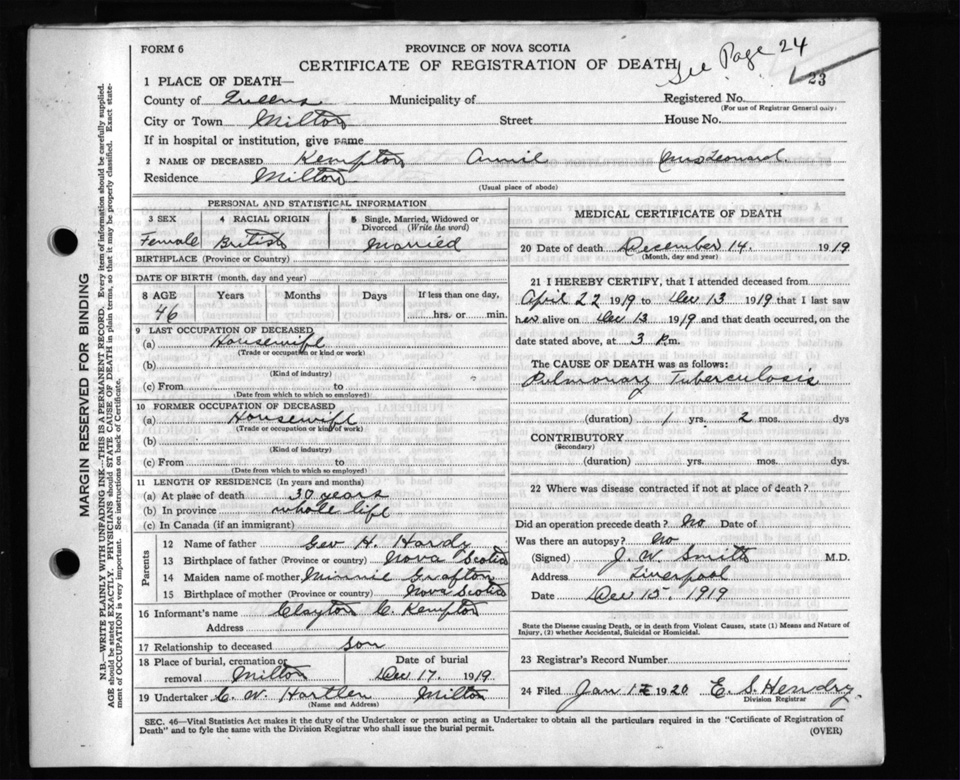 FORM 6
PROVINCE OF NOVA SCOTIA
CERTIFICATE OF REGISTRATION OF DEATH
See Page 24
23
1 PLACE OF DEATH—
County of Queens Municipality of
Registered No.
(For use of Registrar General only)
City or Town Milton Street House No.
If in hospital or institution, give name
2 NAME OF DECEASED Kempton Annie (Mrs Leonard)
Residence Milton
(Usual place of abode)
PERSONAL AND STATISTICAL INFORMATION
3 SEX 4 RACIAL ORIGIN 5 Single, Married, Widowed or Divorced (Write the word)
Female British Married
BIRTHPLACE (Province or Country)
DATE OF BIRTH (month, day and year)
8 AGE Years Months Days If less than one day,
46 hrs. or min.
9 LAST OCCUPATION OF DECEASED
(a) Housewife
(Trade or occupation or kind of work)
(b)
(Kind of industry)
(c) From to
(Date from which to which so employed)
10 FORMER OCCUPATION OF DECEASED
(a) Housewife
(Trade or occupation or kind of work)
(b)
(Kind of industry)
(c) From to
(Date from which to which so employed)
11 LENGTH OF RESIDENCE (In years and months)
(a) At place of death 30 years
(b) In province whole life
(c) In Canada (if an immigrant)
Parents
12 Name of father Geo H. Hardy
13 Birthplace of father (Province or country) Nova Scotia
14 Maiden name of mother Minnie Grafton
15 Birthplace of mother (Province or country) Nova Scotia
16 Informant's name Clayton C. Kempton
Address
17 Relationship to deceased Son
18 Place of burial, cremation or removal Milton Date of burial Dec 17. 1919
19 Undertaker C. W. Hartlen Milton
(Name and Address)
MEDICAL CERTIFICATE OF DEATH
20 Date of death December 14. 1919
(Month, day and year)
21 I HEREBY CERTIFY, that I attended deceased from
April 22 1919 to Dec 13 1919 that I last saw
her alive on Dec 13 1919 and that death occurred, on the
date stated above, at 3 P.m.
The CAUSE OF DEATH was as follows:
Pulmonary Tuberculosis
(duration) 1 yrs. 2 mos. dys
CONTRIBUTORY
(Secondary)
(duration) yrs. mos. dys.
22 Where was disease contracted if not at place of death?
Did an operation precede death? No Date of
Was there an autopsy? No
(Signed) J. W. Smith M.D.
Address Liverpool
Date Dec 15. 1919
State the Disease causing Death, or in death from Violent Causes, state (1) Means and Nature of
Injury, (2) whether Accidental, Suicidal or Homicidal.
23 Registrar's Record Number
24 Filed Jan 1920 E. S. Hendry
Division Registrar
SEC. 46—Vital Statistics Act makes it the duty of the Undertaker or person acting as Undertaker to obtain all the particulars required in the "Certificate of Registration of
Death" and to fyle the same with the Division Registrar who shall issue the burial permit.
(OVER)
MARGIN RESERVED FOR BINDING
N.B.—WRITE PLAINLY WITH UNFADING INK—THIS IS A PERMANENT RECORD. Every item of information should be carefully supplied.
AGE should be stated EXACTLY. PHYSICIANS should STATE CAUSE OF DEATH in plain terms, so that it may be properly classified. Exact state-
ment of OCCUPATION is very important. See instructions on back of Certificate.